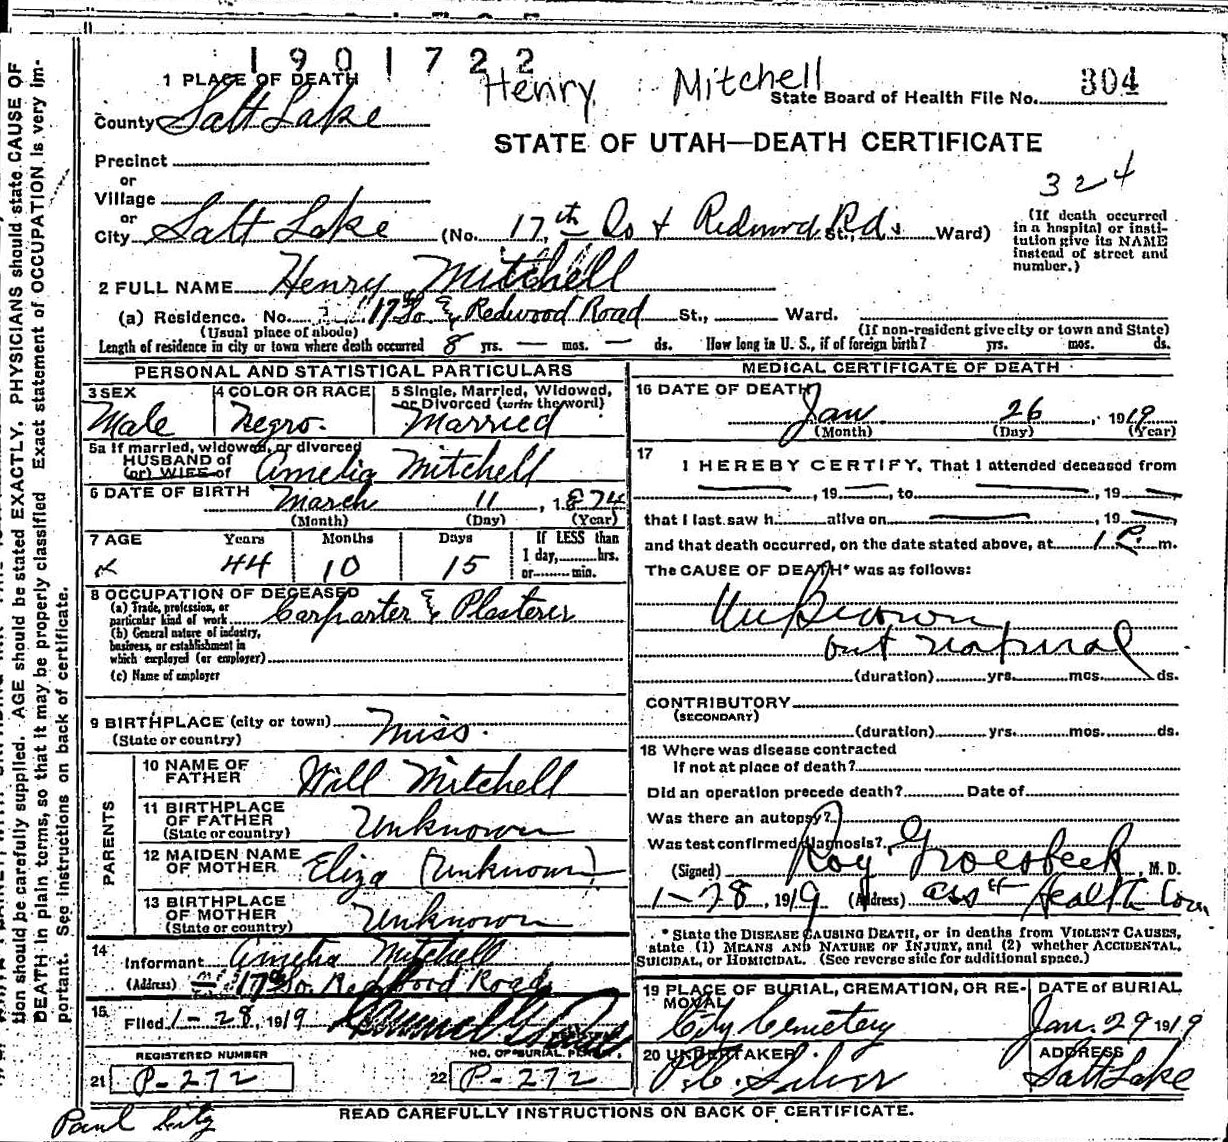 1901722
Henry Mitchell
304
State Board of Health File No.
1 PLACE OF DEATH
County Salt Lake
STATE OF UTAH—DEATH CERTIFICATE
Precinct
or
Village
or
324
City Salt Lake (No. 17th So & Redwood Rd. St., Ward)
(If death occurred
in a hospital or insti-
tution give its NAME
instead of street and
number.)
2 FULL NAME Henry Mitchell
(a) Residence. No. 17th So & Redwood Road St., Ward.
(Usual place of abode)
(If non-resident give city or town and State)
Length of residence in city or town where death occurred 8 yrs. — mos. — ds. How long in U. S., if of foreign birth? yrs. mos. ds.
PERSONAL AND STATISTICAL PARTICULARS
3 SEX
Male
4 COLOR OR RACE
Negro.
5 Single, Married, Widowed,
or Divorced (write the word)
Married
5a If married, widowed, or divorced
HUSBAND of
(or) WIFE of
Amelia Mitchell
6 DATE OF BIRTH March 11, 1874
(Month) (Day) (Year)
7 AGE Years Months Days
44 10 15
If LESS than
1 day,......hrs.
or......min.
8 OCCUPATION OF DECEASED
(a) Trade, profession, or
particular kind of work Carparter & Plasterer
(b) General nature of industry,
business, or establishment in
which employed (or employer)
(c) Name of employer
9 BIRTHPLACE (city or town)
(State or country)
Miss.
PARENTS
10 NAME OF
FATHER
Will Mitchell
11 BIRTHPLACE
OF FATHER
(State or country)
Unknown
12 MAIDEN NAME
OF MOTHER
Eliza (Unknown)
13 BIRTHPLACE
OF MOTHER
(State or country)
Unknown
14
Informant Amelia Mitchell
(Address) 17th So. Redwood Road
15
Filed 1-28, 1919
REGISTERED NUMBER
21 P-272
NO. OF BURIAL PERMIT
22 P-272
MEDICAL CERTIFICATE OF DEATH
16 DATE OF DEATH
Jan 26, 1919
(Month) (Day) (Year)
17
I HEREBY CERTIFY, That I attended deceased from
, 19 , to , 19
that I last saw h alive on , 19
and that death occurred, on the date stated above, at 1 P. m.
The CAUSE OF DEATH* was as follows:
but natural
(duration) yrs. mos. ds.
CONTRIBUTORY
(SECONDARY)
(duration) yrs. mos. ds.
18 Where was disease contracted
If not at place of death?
Did an operation precede death? Date of
Was there an autopsy?
Was test confirmed diagnosis?
(Signed) Roy Groesbeck, M. D.
1-28, 1919 (Address) asst Health Com
* State the DISEASE CAUSING DEATH, or in deaths from VIOLENT CAUSES,
state (1) MEANS AND NATURE OF INJURY, and (2) whether ACCIDENTAL,
SUICIDAL, or HOMICIDAL. (See reverse side for additional space.)
19 PLACE OF BURIAL, CREMATION, OR RE-
MOVAL
City Cemetery
DATE of BURIAL
Jan. 29 1919
20 UNDERTAKER
Silver
ADDRESS
Salt Lake
READ CAREFULLY INSTRUCTIONS ON BACK OF CERTIFICATE.
tion should be carefully supplied. AGE should be stated EXACTLY. PHYSICIANS should state CAUSE OF
DEATH in plain terms, so that it may be properly classified. Exact statement of OCCUPATION is very im-
portant. See instructions on back of certificate.